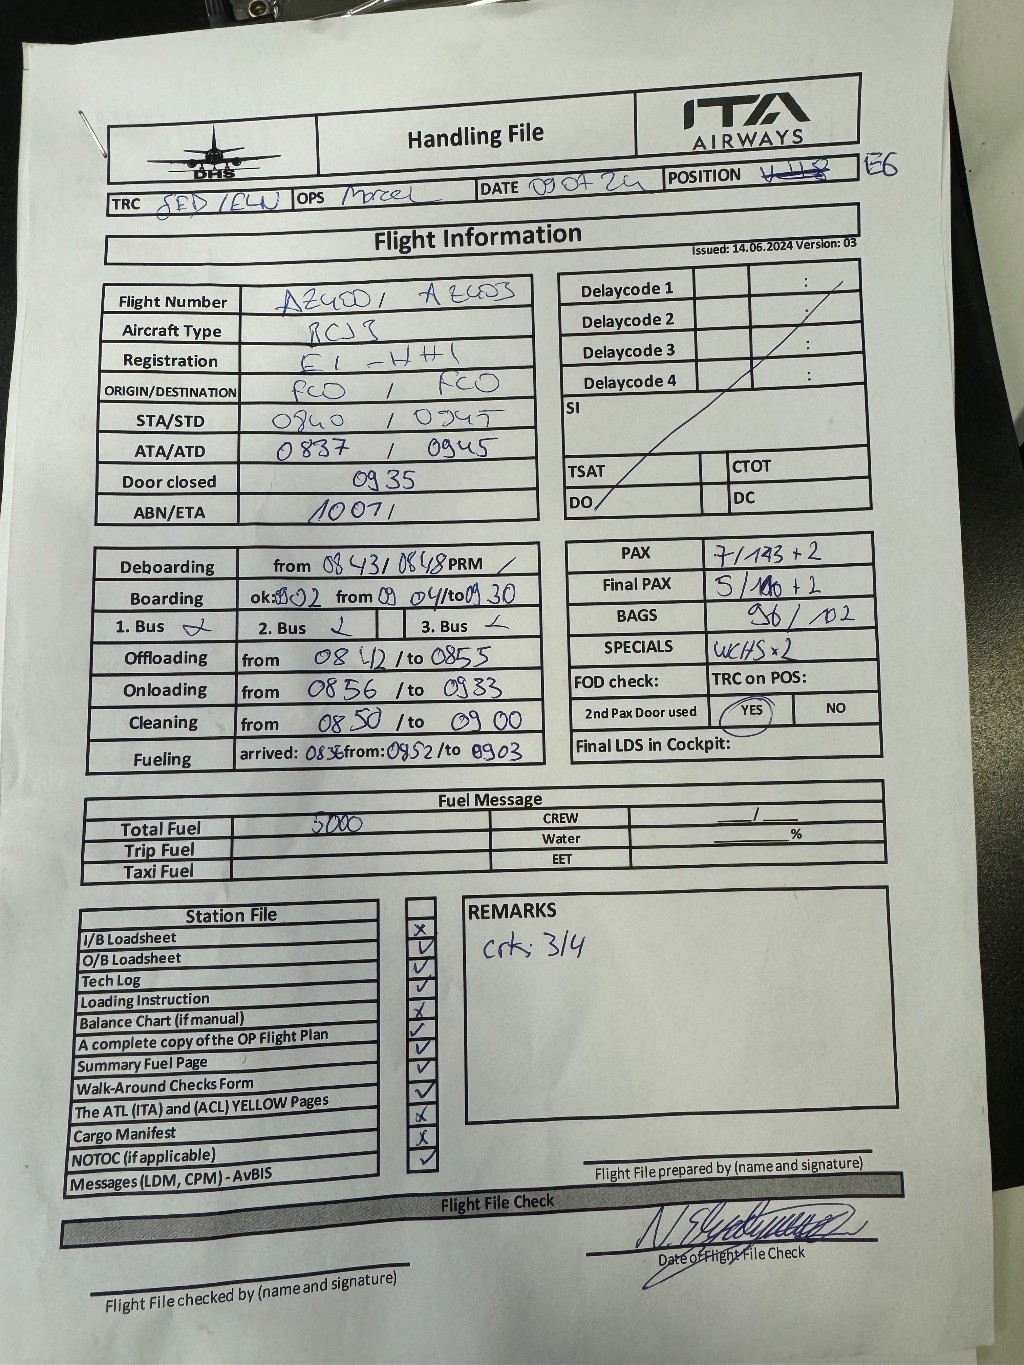 DHS
Handling File
ITA
AIRWAYS
TRC OPS Marcel DATE 09 07 24 POSITION E6
Flight Information
Issued: 14.06.2024 Version: 03
Flight Number AZ400 / AZ403
Aircraft Type BCS3
Registration EI-HHI
ORIGIN/DESTINATION FCO / FCO
STA/STD 0840 / 0945
ATA/ATD 0837 / 0945
Door closed 0935
ABN/ETA 1007 /
Delaycode 1 :
Delaycode 2 :
Delaycode 3 :
Delaycode 4 :
SI
TSAT CTOT
DO DC
Deboarding from 0843 / 0848 PRM /
Boarding ok: 0902 from 09 04 /to 09 30
1. Bus 2. Bus 3. Bus
Offloading from 0842 / to 0855
Onloading from 0856 / to 0933
Cleaning from 0850 / to 0900
Fueling arrived: 0836 from: 0852 /to 0903
PAX 7/143 + 2
Final PAX 5/ + 2
BAGS 96 / 102
SPECIALS WCHS x 2
FOD check: TRC on POS:
2nd Pax Door used YES NO
Final LDS in Cockpit:
Fuel Message
Total Fuel 5000 CREW ___/___
Trip Fuel Water ______%
Taxi Fuel EET
Station File
I/B Loadsheet
O/B Loadsheet
Tech Log
Loading Instruction
Balance Chart (if manual)
A complete copy of the OP Flight Plan
Summary Fuel Page
Walk-Around Checks Form
The ATL (ITA) and (ACL) YELLOW Pages
Cargo Manifest
NOTOC (if applicable)
Messages (LDM, CPM) - AvBIS
REMARKS
crk: 3/4
Flight File prepared by (name and signature)
Flight File Check
Date of Flight File Check
Flight File checked by (name and signature)